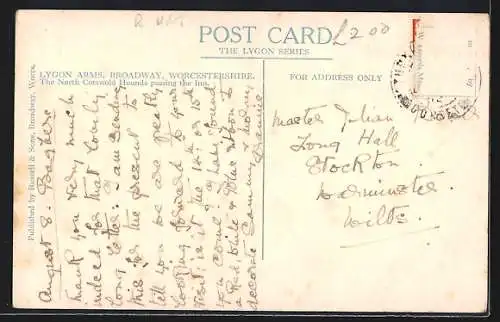 R HNT
POST CARD
£2.00
THE LYGON SERIES
LYGON ARMS, BROADWAY, WORCESTERSHIRE.
The North Cotswold Hounds passing the Inn.
FOR ADDRESS ONLY
Published by Russell & Sons, Broadway, Worcs.
August 8.
Thank you very much
indeed for that lovely
long letter. I am sending
this for the present to
tell you we are greatly
looking forward to your
visit: is it the 14th or 15th
you come? I have found
a Red, White & Blue
decorate Sammy
Master Julian
Long Hall
Stockton
Warminster
Wilts.